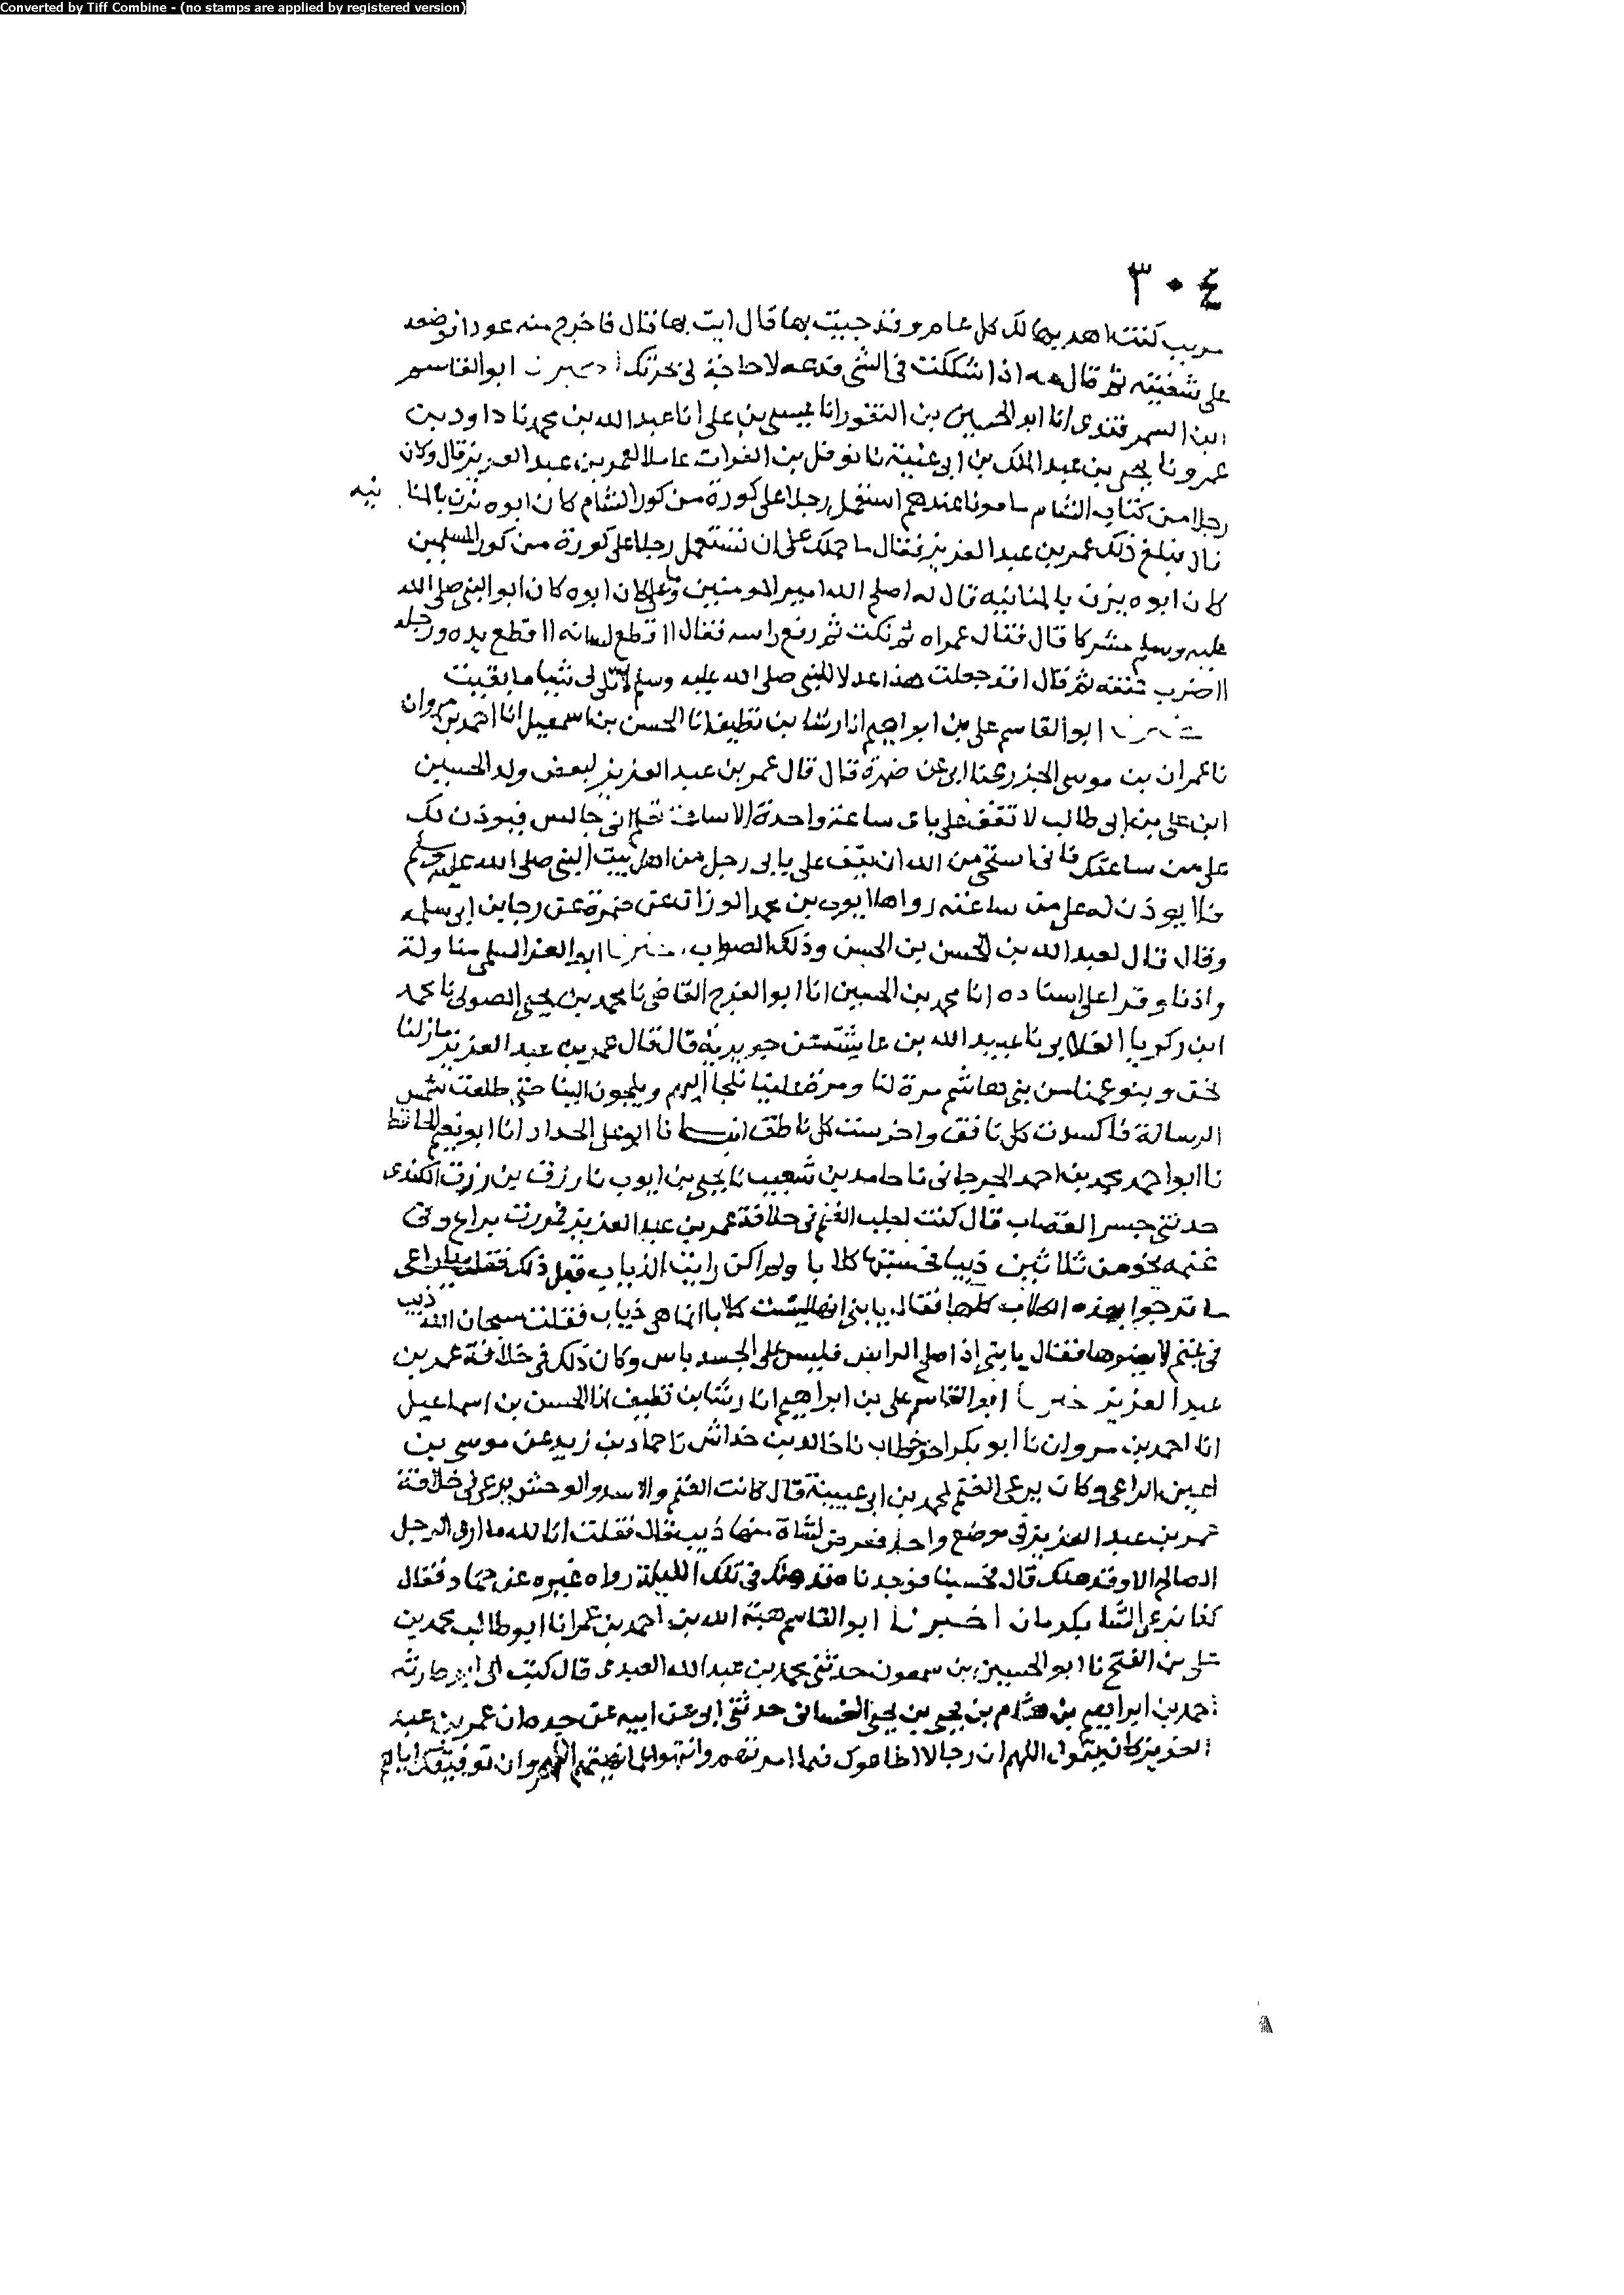 Converted by Tiff Combine - (no stamps are applied by registered version)
٣٠٤
كنت اهديها لك كل عام وقد جيت بها قال ايت بها قال فاخرج منه عودا فوضعه
على شفتيه ثم قال مه اذا شككت فى الشى فدعه لا حاجة لى ابو القاسم
ابن السمرقندى انا ابو الحسين بن النقور انا عيسى بن على انا عبد الله بن محمد نا داود بن
عمرو نا يحيى بن عبد الملك بن ابى غنية نا نوفل بن الفرات عاملا لعمر بن عبد العزيز قال وكان
رجلا من كتاب الشام مامونا عندهم استعمل رجلا على كورة من كور الشام كان ابوه يزن بالمنا نيه
فبلغ ذلك عمر بن عبد العزيز فقال ما حملك على ان تستعمل رجلا على كورة من كور المسلمين
كان ابوه يزن بالمنانيه قال له اصلح الله امير المومنين وما على كان ابوه كان ابو النبى صلى الله
عليه وسلم مشركا قال فقال عمر اه ثم سكت ثم رفع راسه فقال ااقطع لسانه ااقطع يده ورجله
ااضرب عنقه ثم قال اقد جعلت هذا عدلا للنبى صلى الله عليه وسلم لا تلى لى شيا ما بقيت
ابو القاسم على بن ابراهيم انا رشا بن نظيف انا الحسن بن اسمعيل انا احمد بن مروان
نا عمران بن موسى الجزرى نا ابى عن ضمرة قال قال عمر بن عبد العزيز لبعض ولد الحسين
ابن على بن ابى طالب لا تقف على بابى ساعة واحدة الا ساعة تعلم انى جالس فيوذن لك
على من ساعتك فانى استحى من الله ان يقف على بابى رجل من اهل بيت النبى صلى الله عليه وسلم
فلا يوذن له على من ساعته رواها ايوب بن محمد الوزان عن ضمرة عن رجا بن ابى سلمه
وقال قال لعبد الله بن الحسن بن الحسن وذلك الصواب ابو العز السلمى مناولة
واذنا وقرا على اسناده انا محمد بن الحسين انا ابو الفرج القاضى نا محمد بن يحيى الصولى نا محمد
ابن زكريا الغلابى نا عبيد الله بن عايشة عن جويرية قال قال عمر بن عبد العزيز ما زلنا
نحن وبنو عمنا من بنى هاشم مرة لنا ومرة علينا نلجا اليهم ويلجون الينا حتى طلعت شمس
الرسالة فاكسدت كل نافق واخرست كل ناطق انبانا ابو على الحداد انا ابو نعيم الحافظ
نا ابو احمد محمد بن احمد الجرجانى نا حامد بن شعيب نا يحيى بن ايوب نا رزق بن رزق الكندى
حدثنى جسر القصاب قال كنت اجلب الغنم فى خلافة عمر بن عبد العزيز فمررت براع وفى
غنمه نحو من ثلاثين ذيبا فحسبتها كلابا ولم اكن رايت الذياب قبل ذلك فقلت ياراعى
ما ترجوا بهذه الكلاب كلها فقال يا بنى انها ليست كلابا انما هى ذياب فقلت سبحان الله ذيب
فى غنم لا يضرها فقال يا بنى اذا صلح الراس فليس على الجسد باس وكان ذلك فى خلافة عمر بن
عبد العزيز ابو القاسم على بن ابراهيم انا رشا بن نظيف انا الحسن بن اسماعيل
انا احمد بن مروان نا ابو بكر اخو خطاب نا خالد بن خداش نا حماد بن زيد عن موسى بن
اعين الراعى وكان يرعى الغنم لمحمد بن ابى عيينة قال كانت الغنم والاسد والوحش يرعى فى خلافة
عمر بن عبد العزيز فى موضع واحد فعرض لشاة منها ذيب فقال فقلت انا لله ما ارى الرجل
الصالح الا وقد هلك قال فحسبنا فوجدنا قد هلك فى تلك الليلة رواه غيره عن حماد فقال
كنا نرعى الشا بكرمان اخبرنا ابو القاسم هبة الله بن احمد بن عمر انا ابو طالب محمد بن
على بن الفتح نا ابو الحسين بن سمعون حدثنى محمد بن عبد الله العبدى قال كتب الى
احمد بن ابراهيم بن هشام بن يحيى بن يحيى الغسانى حدثنى ابى عن ابيه عن جده ان عمر بن عبد
العزيز كان يقول اللهم ان رجالا اطاعوك فيما امرتهم وانتهوا عما نهيتهم اللهم وان توفيقك اياهم